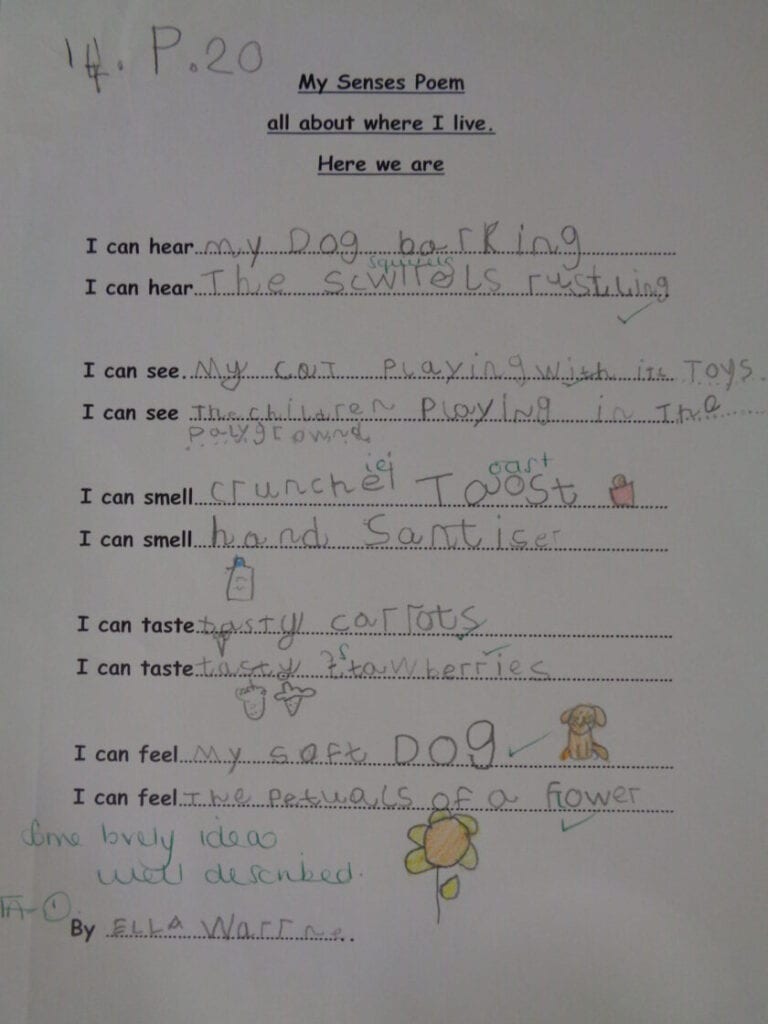 P.20
My Senses Poem
all about where I live.
Here we are
I can hear my Dog barking
squirrels
I can hear The scwirrels rustling
I can see. My cat playing with its Toys.
I can see The children playing in The
palyground
ie oast
I can smell crunchel Taost
I can smell hand Santiser
I can taste tasty carrots
s
I can taste tasty stawberries
I can feel My soft Dog
I can feel The petuals of a flower
Some lovely ideas
well described.
TA-1
By ELLA Warrne